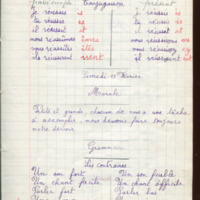 passé simple Conjugaison présent
je réussis is je réussis is
tu réussis is tu réussis is
il réussit it il réussit it
nous réussîmes îmes nous réussissons
vous réussîtes îtes vous réussissez
ils réussirent irent ils réussissent
Samedi 13 Février
Morale
Petite et grande, chacun de nous a une tâche
à accomplir, nous devons faire toujours
notre devoir.
Grammaire
Les contraires
Un son fort Un son faible
Un chant facile Un chant difficile
Parler fort Parler bas